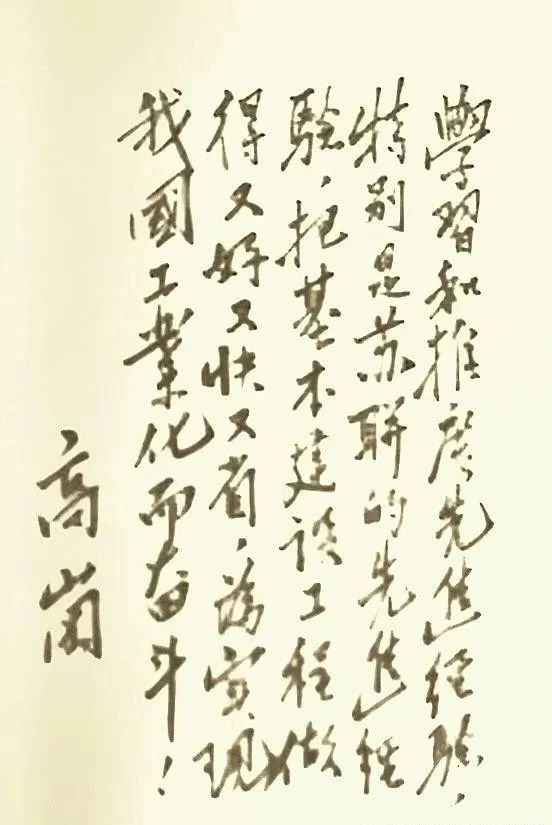 學習和推广先進經驗，
特别是苏联的先進經
驗，把基本建設工程做
得又好又快又省，為实現
我國工業化而奋斗！
高崗